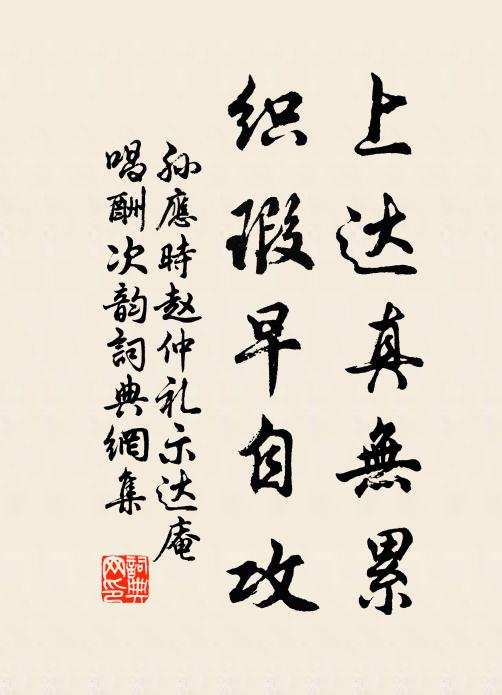 上达真無累
织瑕早自攻
孙應時赵仲礼示达庵
唱酬次韵詞典網集
詞典
网印